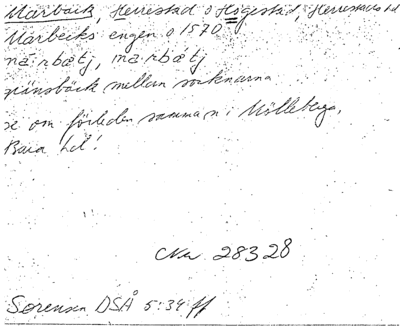 Marbäck, Herrestad o Högestad, Herrestads hd
Marbecks engen o 1570
ma·rbætj, marbætj
gränsbäck mellan socknarna
se om förleden samman i Mölleberga,
Bara hd!
Nu 28328
Sörensen DSÅ 5:34 ff